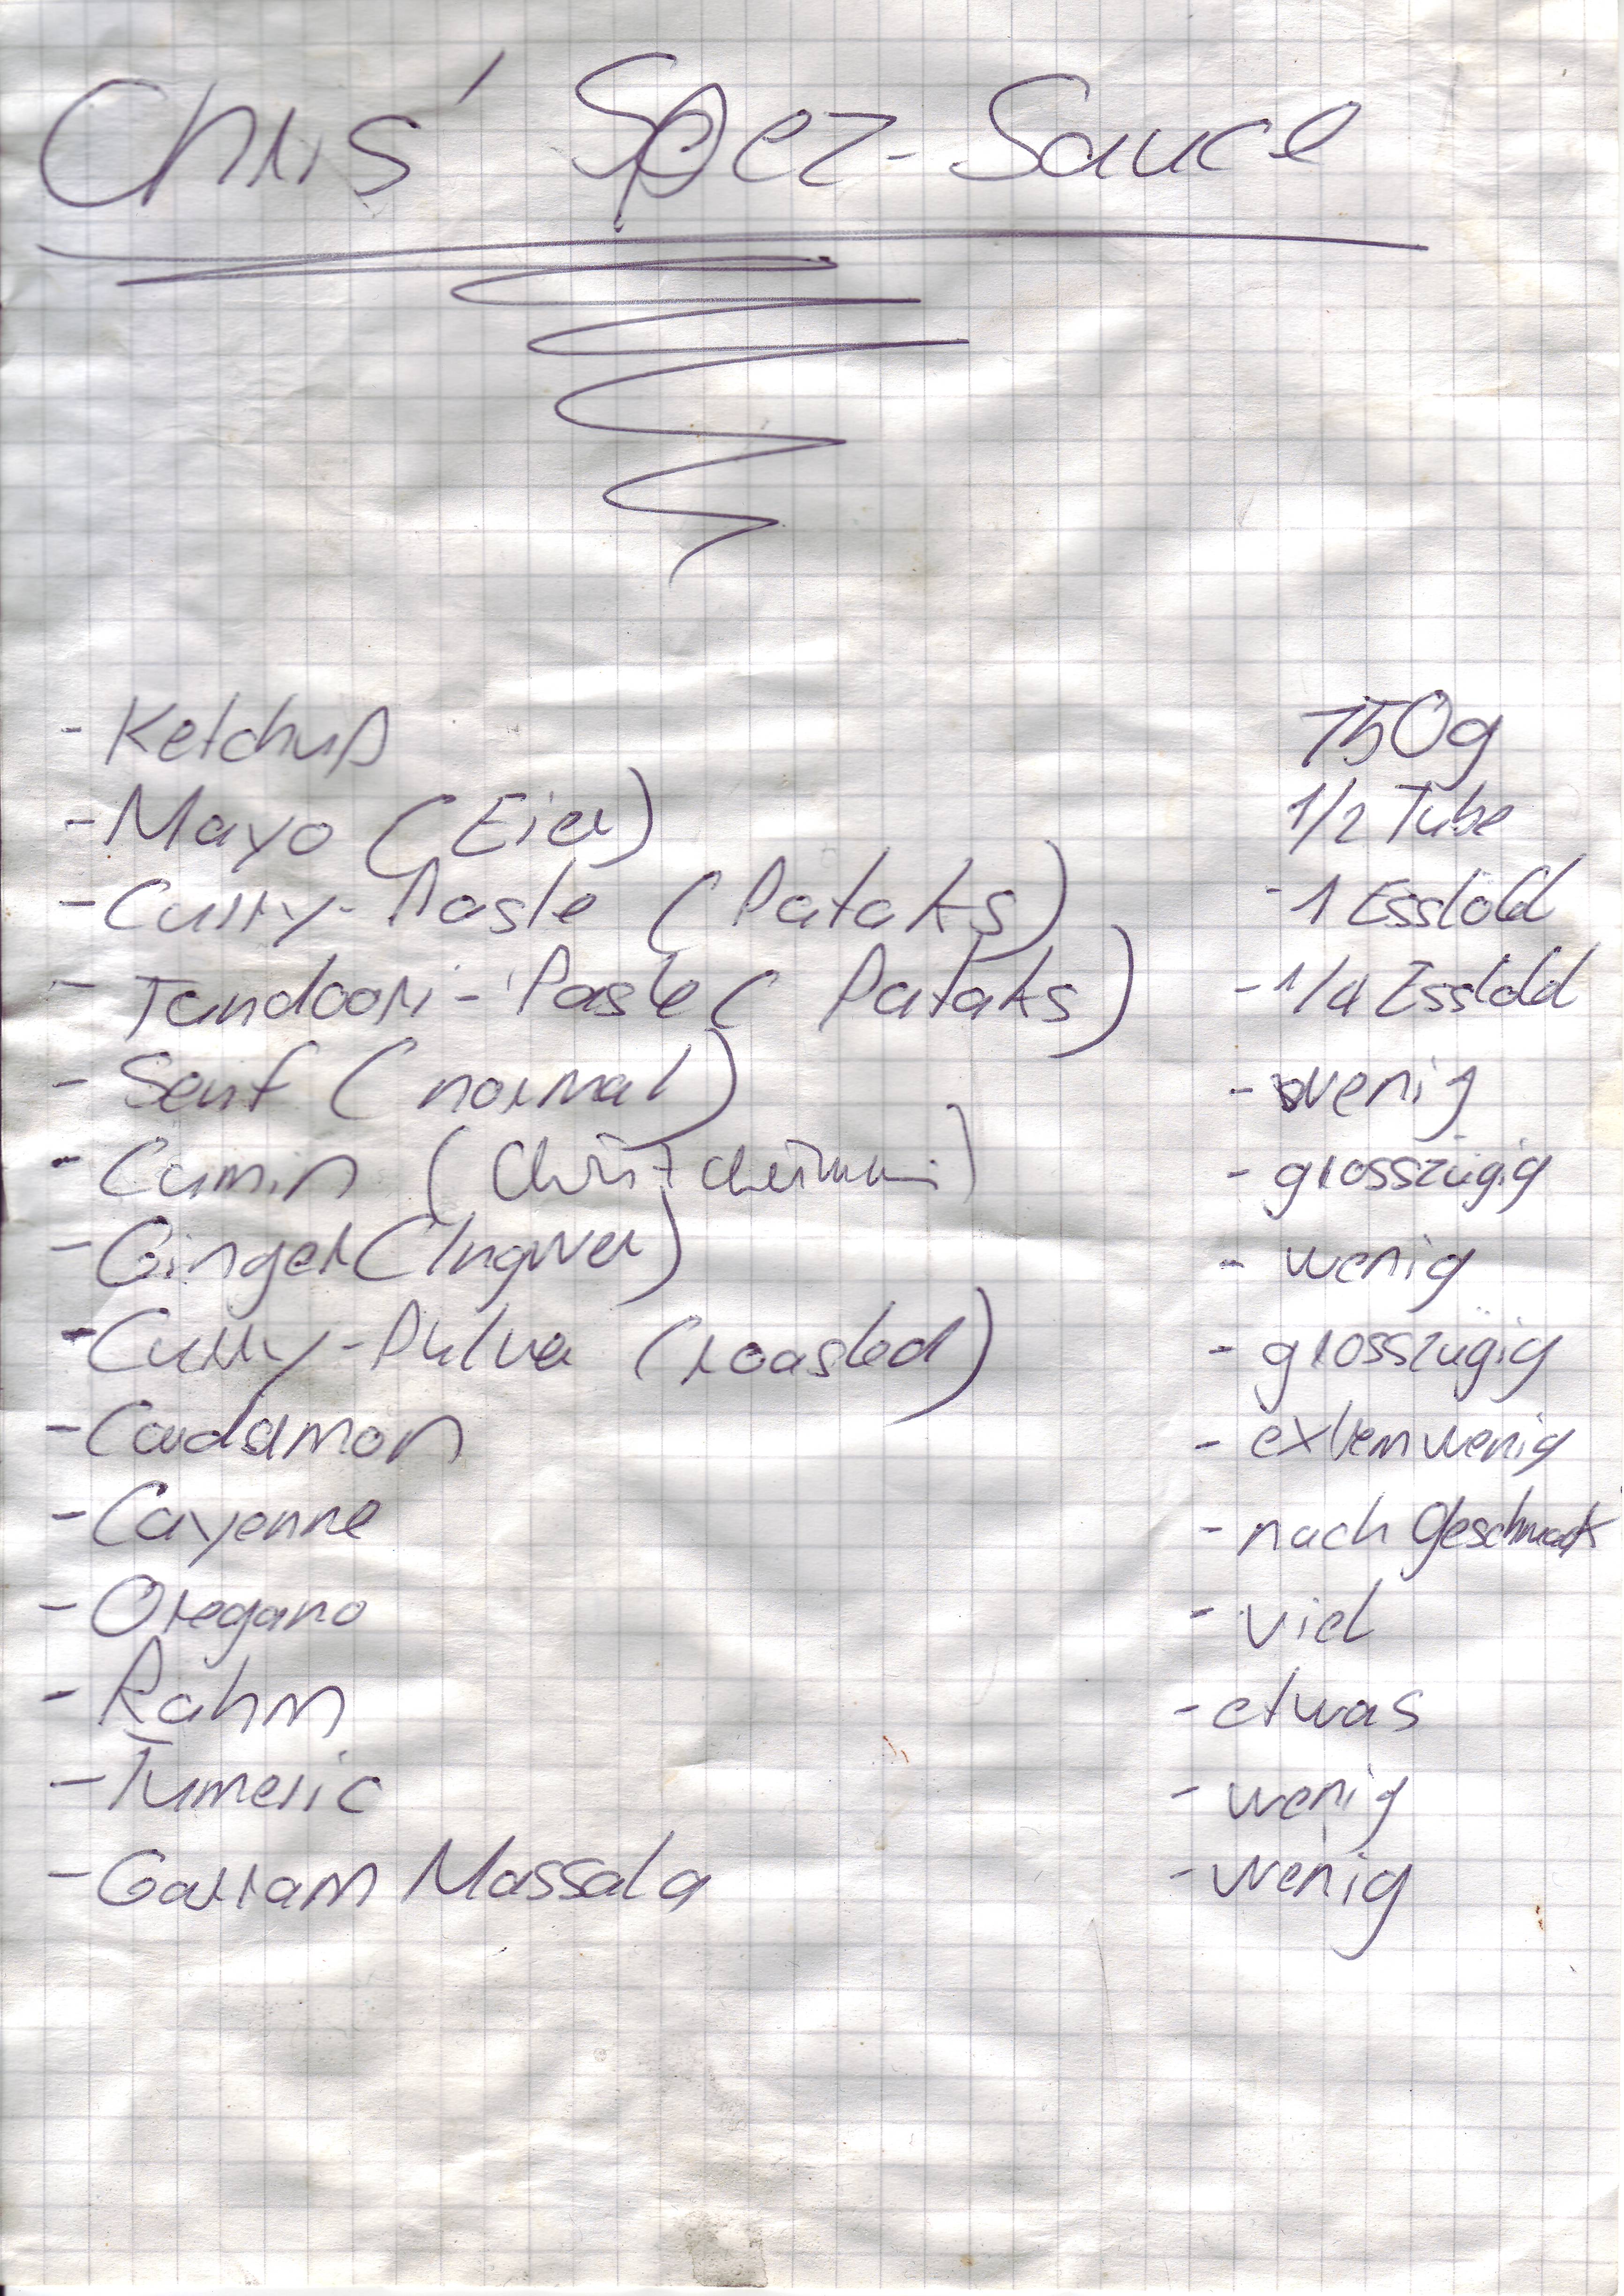 Chris' Spez-Sauce
- Ketchup 150g
- Mayo (Eier) 1/2 Tube
- Curry-Paste (Pataks) - 1 Esslöffel
- Tandoori-Paste (Pataks) - 1/4 Esslöffel
- Senf (normal) - wenig
- Cumin ( ) - grosszügig
- Ginger (Ingwer) - wenig
- Curry-Pulver (roasted) - grosszügig
- Cardamon - extrem wenig
- Cayenne - nach Geschmack
- Oregano - viel
- Rahm - etwas
- Tumeric - wenig
- Garram Massala - wenig